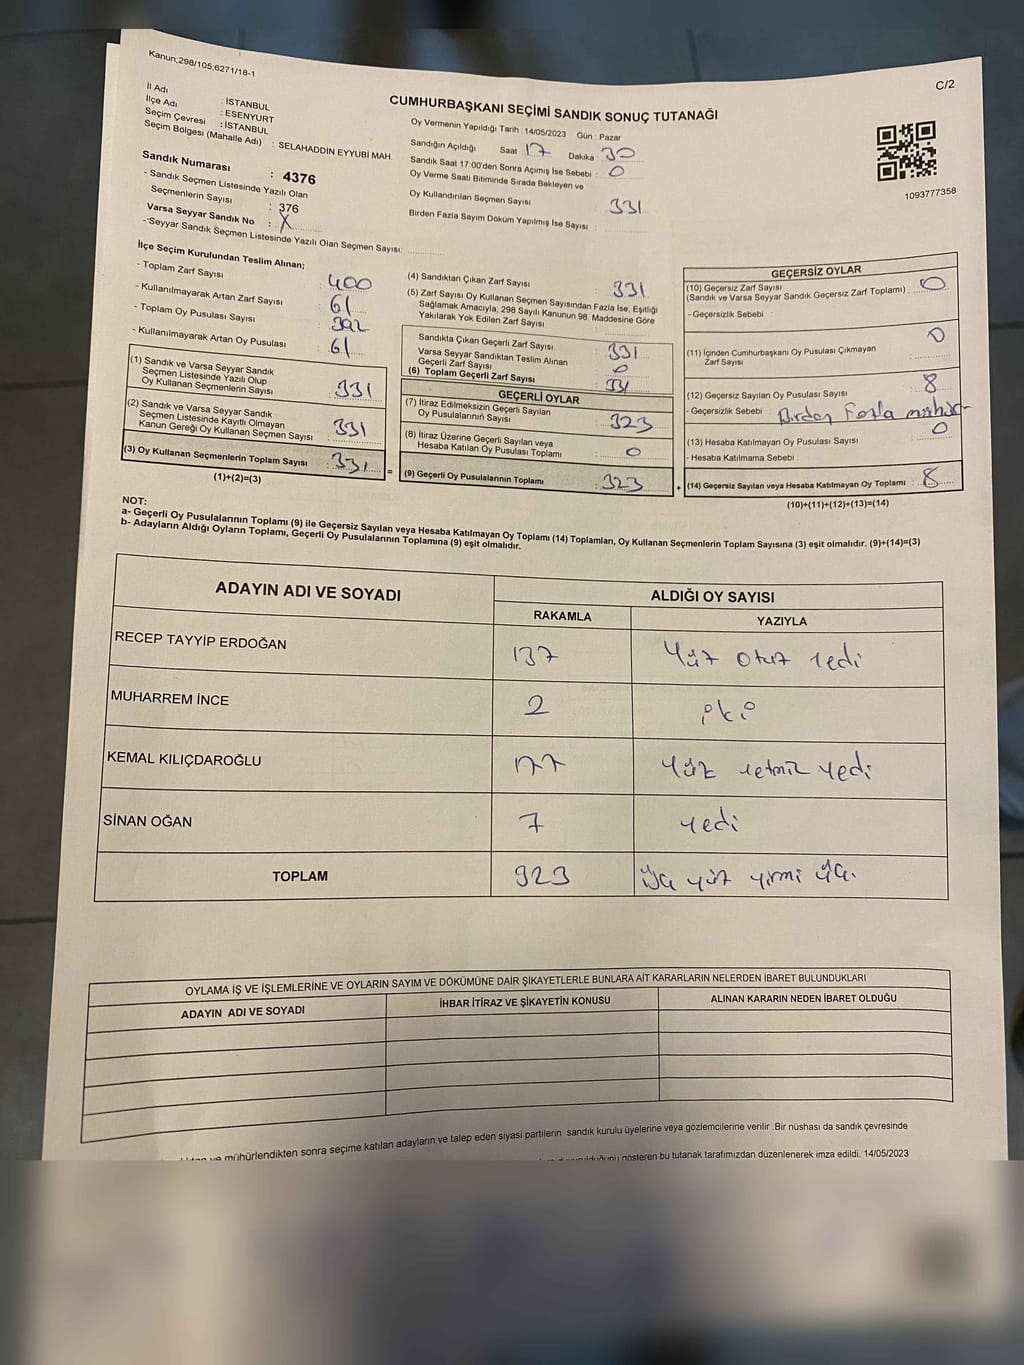 Kanun;298/105;6271/18-1
C/2
CUMHURBAŞKANI SEÇİMİ SANDIK SONUÇ TUTANAĞI
İl Adı : İSTANBUL
İlçe Adı : ESENYURT
Seçim Çevresi : İSTANBUL
Seçim Bölgesi (Mahalle Adı) : SELAHADDİN EYYUBİ MAH.
Sandık Numarası : 4376
- Sandık Seçmen Listesinde Yazılı Olan
Seçmenlerin Sayısı : 376
Varsa Seyyar Sandık No : X
- Seyyar Sandık Seçmen Listesinde Yazılı Olan Seçmen Sayısı:
Oy Vermenin Yapıldığı Tarih : 14/05/2023 Gün : Pazar
Sandığın Açıldığı Saat : 17 Dakika : 30
Sandık Saat 17:00'den Sonra Açımış İse Sebebi : 0
Oy Verme Saati Bitiminde Sırada Bekleyen ve
Oy Kullandırılan Seçmen Sayısı : 331
Birden Fazla Sayım Döküm Yapılmış İse Sayısı :
1093777358
İlçe Seçim Kurulundan Teslim Alınan;
- Toplam Zarf Sayısı : 400
- Kullanılmayarak Artan Zarf Sayısı : 61
- Toplam Oy Pusulası Sayısı : 392
- Kullanılmayarak Artan Oy Pusulası : 61
(1) Sandık ve Varsa Seyyar Sandık
Seçmen Listesinde Yazılı Olup
Oy Kullanan Seçmenlerin Sayısı : 331
(2) Sandık ve Varsa Seyyar Sandık
Seçmen Listesinde Kayıtlı Olmayan
Kanun Gereği Oy Kullanan Seçmen Sayısı : 331
(3) Oy Kullanan Seçmenlerin Toplam Sayısı : 331
(1)+(2)=(3)
(4) Sandıktan Çıkan Zarf Sayısı : 331
(5) Zarf Sayısı Oy Kullanan Seçmen Sayısından Fazla İse, Eşitliği
Sağlamak Amacıyla; 298 Sayılı Kanunun 98. Maddesine Göre
Yakılarak Yok Edilen Zarf Sayısı :
Sandıkta Çıkan Geçerli Zarf Sayısı : 331
Varsa Seyyar Sandıktan Teslim Alınan
Geçerli Zarf Sayısı : 0
(6) Toplam Geçerli Zarf Sayısı : 331
GEÇERLİ OYLAR
(7) İtiraz Edilmeksizin Geçerli Sayılan
Oy Pusulalarının Sayısı : 323
(8) İtiraz Üzerine Geçerli Sayılan veya
Hesaba Katılan Oy Pusulası Toplamı : 0
= (9) Geçerli Oy Pusulalarının Toplamı : 323
GEÇERSİZ OYLAR
(10) Geçersiz Zarf Sayısı
(Sandık ve Varsa Seyyar Sandık Geçersiz Zarf Toplamı) : 0
- Geçersizlik Sebebi
(11) İçinden Cumhurbaşkanı Oy Pusulası Çıkmayan
Zarf Sayısı : 0
(12) Geçersiz Sayılan Oy Pusulası Sayısı : 8
- Geçersizlik Sebebi : Birden Fazla mühür
(13) Hesaba Katılmayan Oy Pusulası Sayısı : 0
- Hesaba Katılmama Sebebi :
+ (14) Geçersiz Sayılan veya Hesaba Katılmayan Oy Toplamı : 8
(10)+(11)+(12)+(13)=(14)
NOT:
a- Geçerli Oy Pusulalarının Toplamı (9) ile Geçersiz Sayılan veya Hesaba Katılmayan Oy Toplamı (14) Toplamları, Oy Kullanan Seçmenlerin Toplam Sayısına (3) eşit olmalıdır. (9)+(14)=(3)
b- Adayların Aldığı Oyların Toplamı, Geçerli Oy Pusulalarının Toplamına (9) eşit olmalıdır.
ADAYIN ADI VE SOYADI ALDIĞI OY SAYISI
RAKAMLA YAZIYLA
RECEP TAYYİP ERDOĞAN 137 Yüz otuz yedi
MUHARREM İNCE 2 iki
KEMAL KILIÇDAROĞLU 177 Yüz yetmiş yedi
SİNAN OĞAN 7 yedi
TOPLAM 323 üç yüz yirmi üç.
OYLAMA İŞ VE İŞLEMLERİNE VE OYLARIN SAYIM VE DÖKÜMÜNE DAİR ŞİKAYETLERLE BUNLARA AİT KARARLARIN NELERDEN İBARET BULUNDUKLARI
ADAYIN ADI VE SOYADI İHBAR İTİRAZ VE ŞİKAYETİN KONUSU ALINAN KARARIN NEDEN İBARET OLDUĞU
ve mühürlendikten sonra seçime katılan adayların ve talep eden siyasi partilerin sandık kurulu üyelerine veya gözlemcilerine verilir .Bir nüshası da sandık çevresinde
gösteren bu tutanak tarafımızdan düzenlenerek imza edildi. 14/05/2023